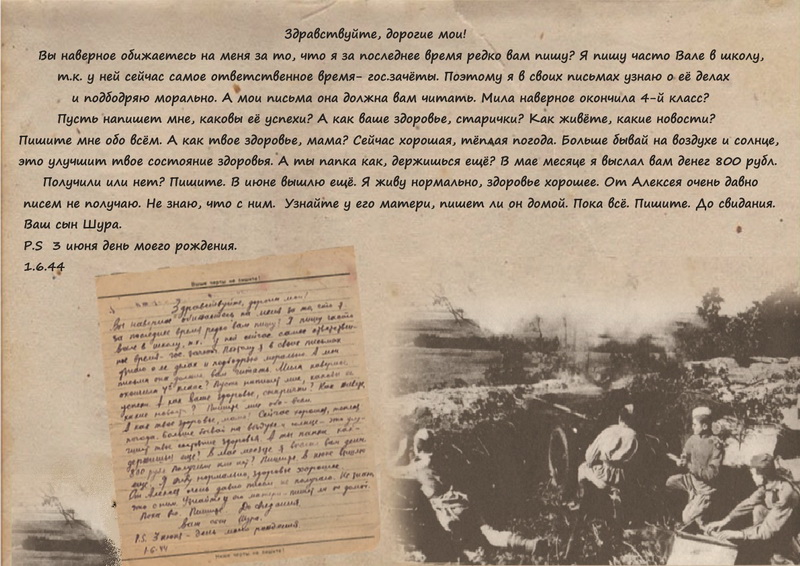 Здравствуйте, дорогие мои!
Вы наверное обижаетесь на меня за то, что я за последнее время редко вам пишу? Я пишу часто Вале в школу,
т.к. у ней сейчас самое ответственное время- гос.зачёты. Поэтому я в своих письмах узнаю о её делах
и подбодряю морально. А мои письма она должна вам читать. Мила наверное окончила 4-й класс?
Пусть напишет мне, каковы её успехи? А как ваше здоровье, старички? Как живёте, какие новости?
Пишите мне обо всём. А как твое здоровье, мама? Сейчас хорошая, тёплая погода. Больше бывай на воздухе и солнце,
это улучшит твое состояние здоровья. А ты папка как, держишься ещё? В мае месяце я выслал вам денег 800 рубл.
Получили или нет? Пишите. В июне вышлю ещё. Я живу нормально, здоровье хорошее. От Алексея очень давно
писем не получаю. Не знаю, что с ним. Узнайте у его матери, пишет ли он домой. Пока всё. Пишите. До свидания.
Ваш сын Шура.
P.S 3 июня день моего рождения.
1.6.44
Выше черты не пишите!
Здравствуйте, дорогие мои!
Вы наверное обижаетесь на меня за то, что я
за последнее время редко вам пишу? Я пишу часто
Вале в школу, т.к. у ней сейчас самое ответствен-
ное время- гос. зачёты. Поэтому я в своих письмах
узнаю о ее делах и подбодряю морально. А мои
письма она должна вам читать. Мила наверное
окончила 4й класс? Пусть напишет мне, каковы её
успехи? А как ваше здоровье, старички? Как живёте,
какие новости? Пишите мне обо всем
А как твое здоровье, мама? Сейчас хорошая, теплая
погода. Больше бывай на воздухе и солнце - это улу-
чшит твое состояние здоровья. А ты папка как-
держишься ещё? В мае месяце я выслал вам денег
800 рубл. Получили или нет? Пишите. В июне вышлю
еще. Я живу нормально, здоровье хорошее.
От Алексея очень давно писем не получаю. Не знаю,
что с ним. Узнайте у его матери, пишет ли он домой.
Пока все. Пишите. До свидания
Ваш сын Шура.
P.S. 3 июня - день моего рождения
1.6.44
Ниже черты не пишите!